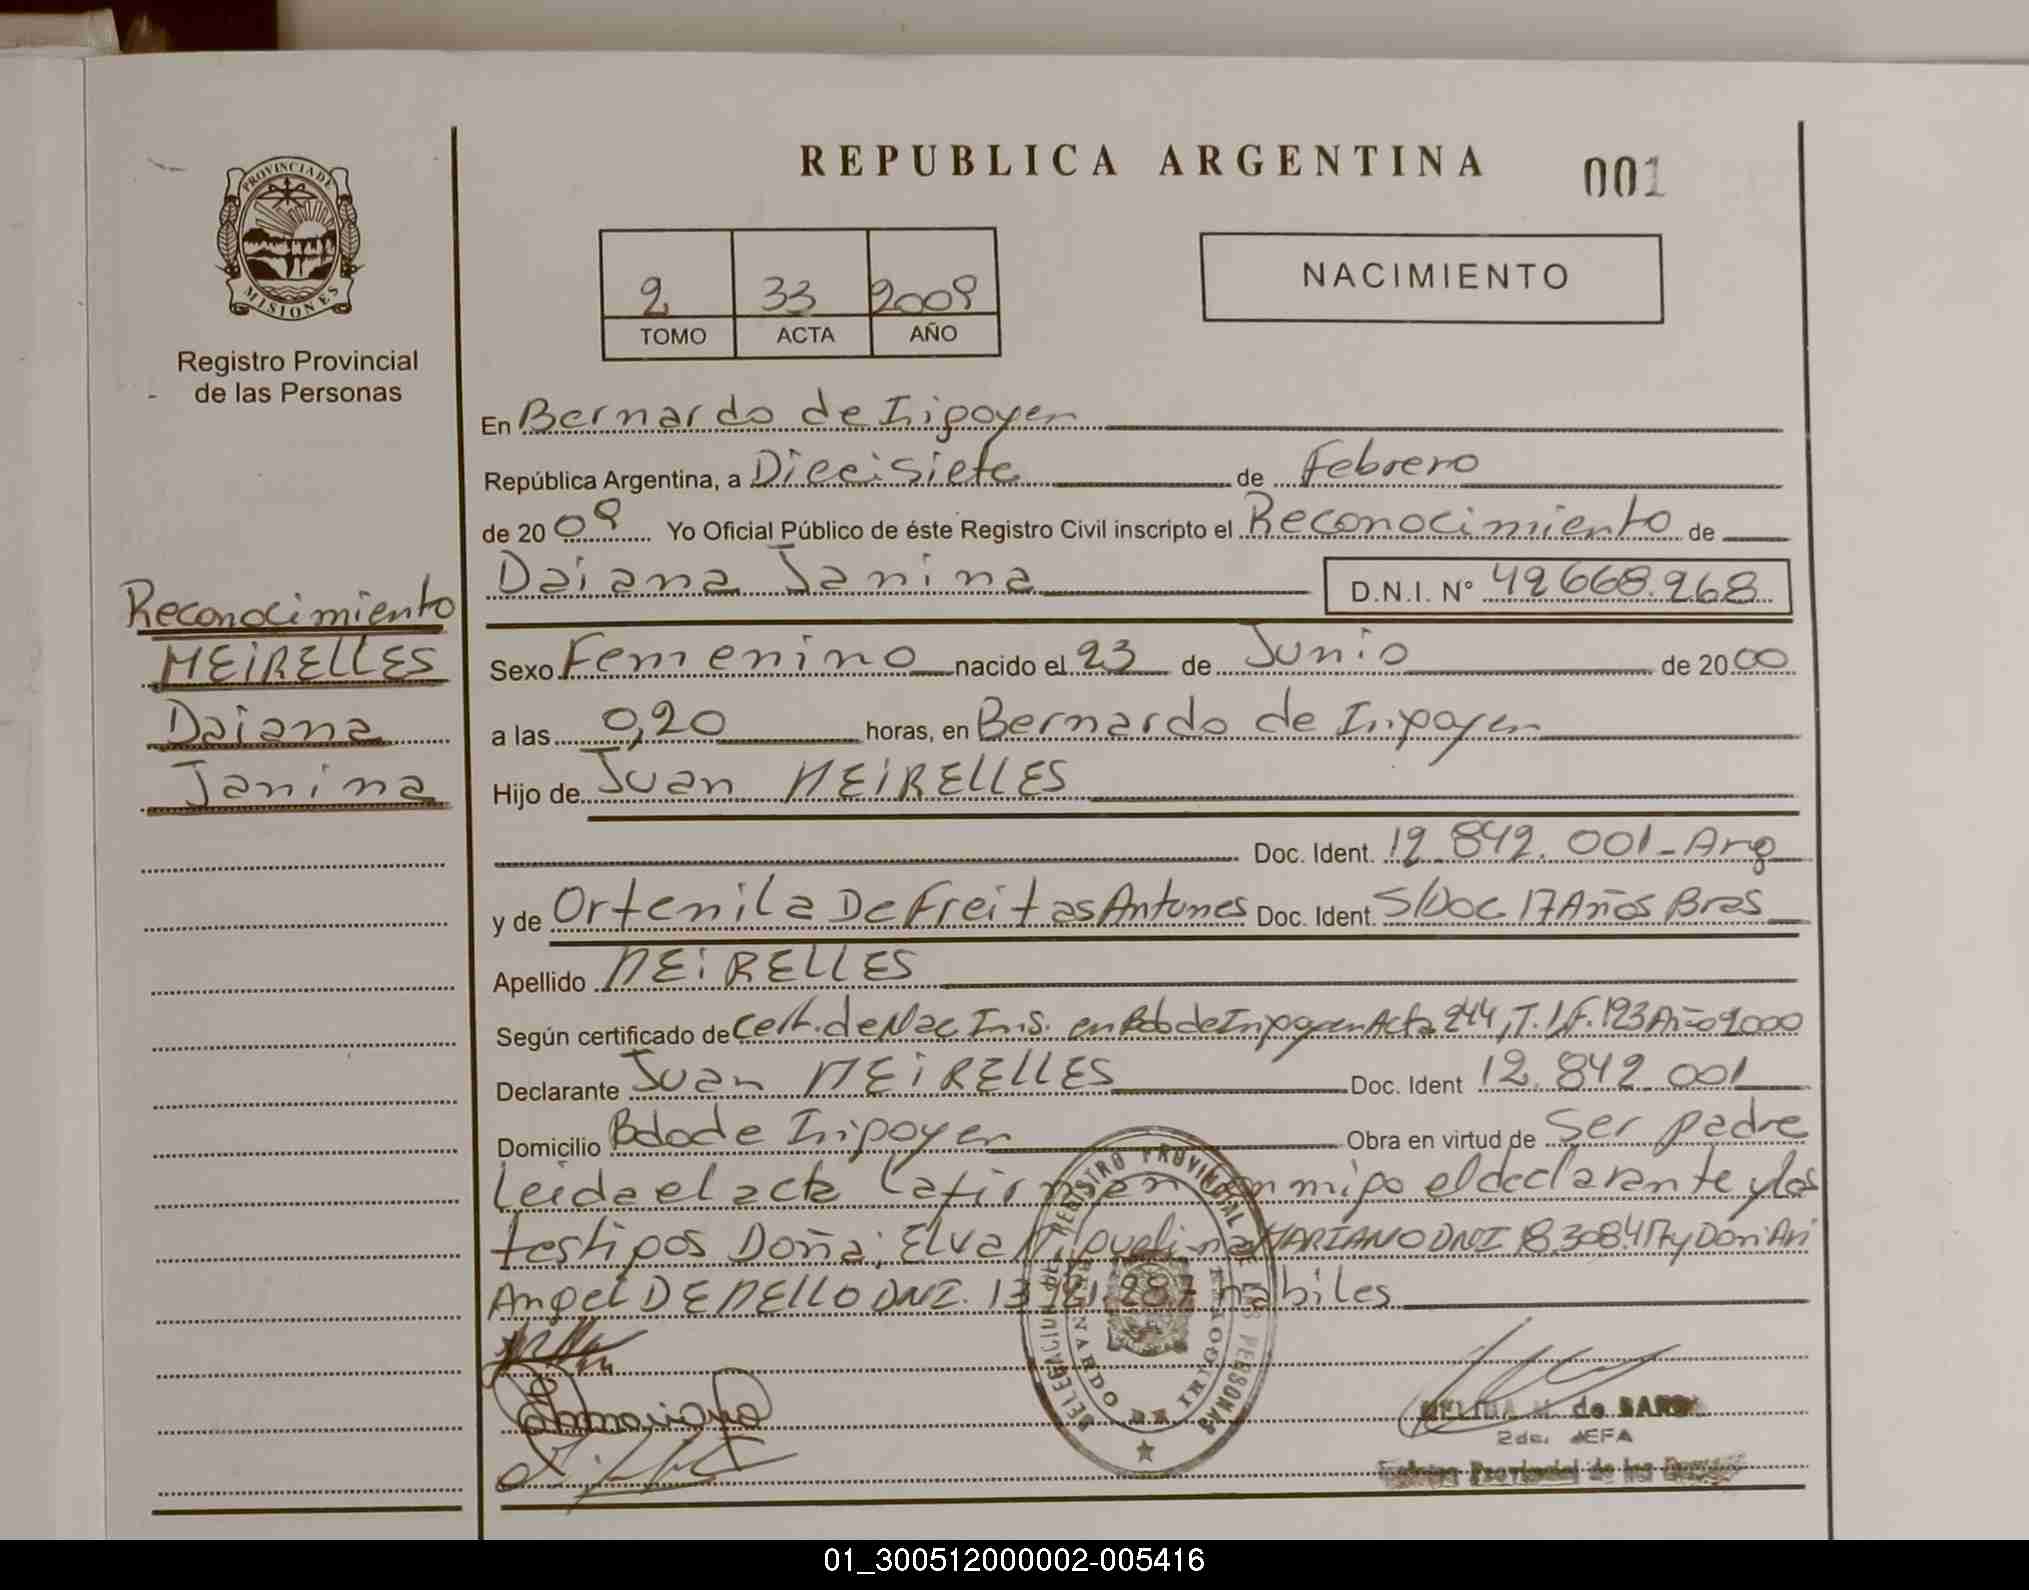 REPUBLICA ARGENTINA
001
PROVINCIA DE
MISIONES
Registro Provincial
de las Personas
2 33 2009
TOMO ACTA AÑO
NACIMIENTO
En Bernardo de Irigoyen
República Argentina, a Diecisiete de Febrero
de 2009 Yo Oficial Público de éste Registro Civil inscripto el Reconocimiento de
Daiana Janina D.N.I. N° 42668.268
Reconocimiento
MEIRELLES
Daiana
Janina
Sexo Femenino nacido el 23 de Junio de 2000
a las 0,20 horas, en Bernardo de Irigoyen
Hijo de Juan MEIRELLES
Doc. Ident. 12.842.001-Arg
y de Ortenila De Freitas Antunes Doc. Ident. S/Doc 17 Años Bras
Apellido MEIRELLES
Según certificado de Cert. de Nac Ins. en Bdo de Irigoyen Acta 244, T. 1, F. 123 Año 2000
Declarante Juan MEIRELLES Doc. Ident 12.842.001
Domicilio Bdo de Irigoyen Obra en virtud de Ser padre
Leida el acta la firman conmigo el declarante y los
testigos Doña: Elva Miguelina MARIANO DNI 18.308.417 y Don: Ari
Angel DE MELLO DNI. 13 287 habiles
REGISTRO PROVINCIAL DE LAS PERSONAS
DELEGACION
BERNARDO DE IRIGOYEN
de
2da. JEFA
Provincial de las
01_300512000002-005416